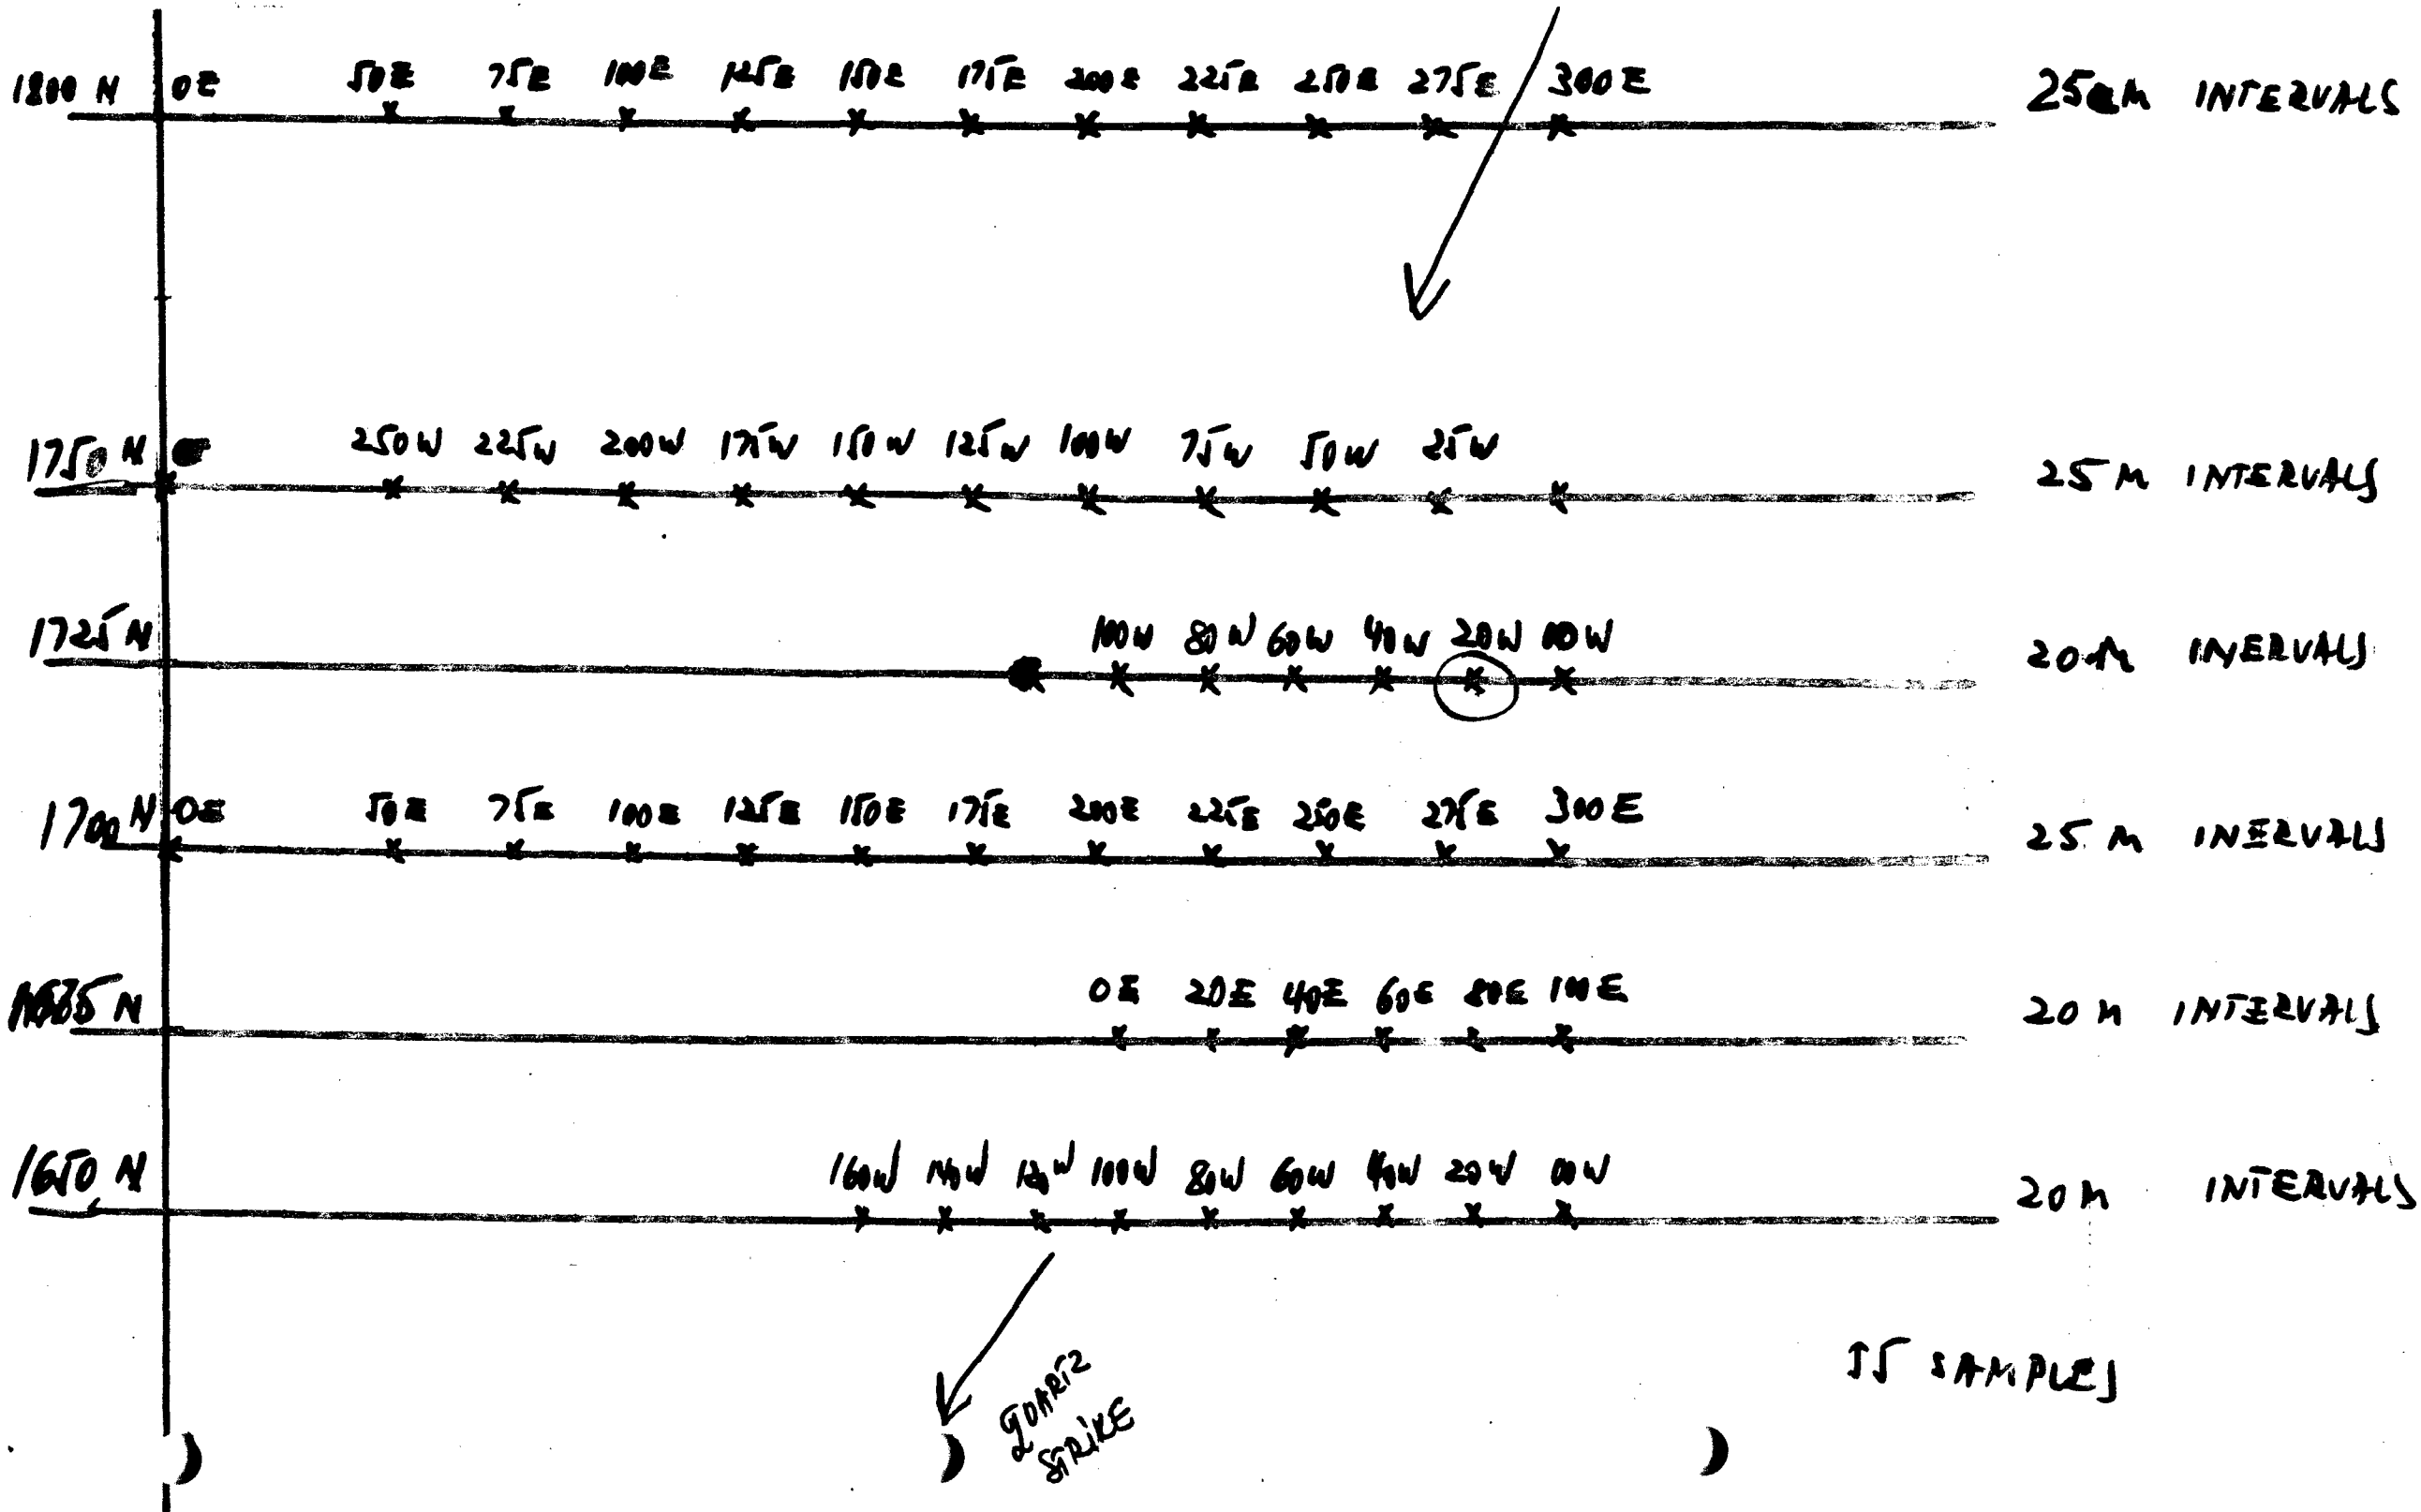 1800 N OE 50E 75E 100E 125E 150E 175E 200E 225E 250E 275E 300E 25 M INTERVALS
1750 N 250W 225W 200W 175W 150W 125W 100W 75W 50W 25W 25 M INTERVALS
1725 N 100W 80W 60W 40W 20W 00W 20 M INERVALS
1700 N OE 50E 75E 100E 125E 150E 175E 200E 225E 250E 275E 300E 25 M INERVALS
N OE 20E 40E 60E 80E 100E 20 M INTERVALS
1650 N 160W 140W 120W 100W 80W 60W 40W 20W 00W 20 M INTERVALS
55 SAMPLES
QUARTZ
STRIKE